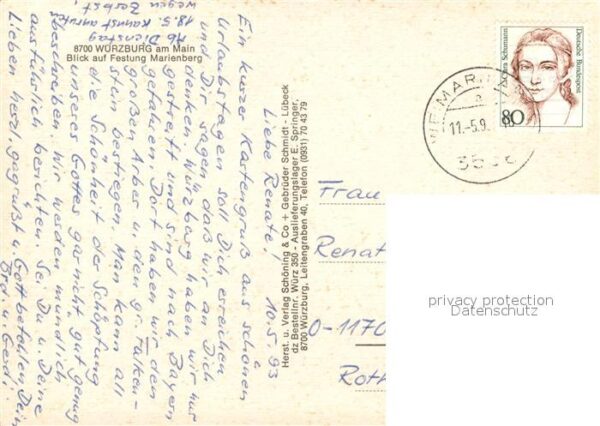 8700 WÜRZBURG am Main
Blick auf Festung Marienberg
Ab Dienstag
18.5. kannst anrufen
wegen Zerbst,
10.5.93
Liebe Renate!
Ein kurzer Kartengruß aus schönen
Urlaubstagen soll Dich erreichen
und Dir sagen, daß wir an Dich
denken. Würzburg haben wir nur
gestreift und sind nach Bayern
gefahren. Dort haben wir den
großen Arber u. den gr. Falken-
stein bestiegen. Man kann all
die Schönheit der Schöpfung
unseres Gottes gar nicht gut genug
beschreiben. Wir werden mündlich
ausführlich berichten. Sei Du u. Deine
Lieben herzl. gegrüßt u. Gott befohlen Dein
Bro u. Gerdi.
Herst. u. Verlag Schöning & Co + Gebrüder Schmidt - Lübeck
dz Bestellnr. Würz 350 - Auslieferungslager E. Springer,
8700 Würzburg, Leitengraben 40, Telefon (0931) 70 43 79
Clara Schumann
Deutsche Bundespost
80
11.-5.9
Frau
Renat
O-1170
Roth
privacy protection
Datenschutz